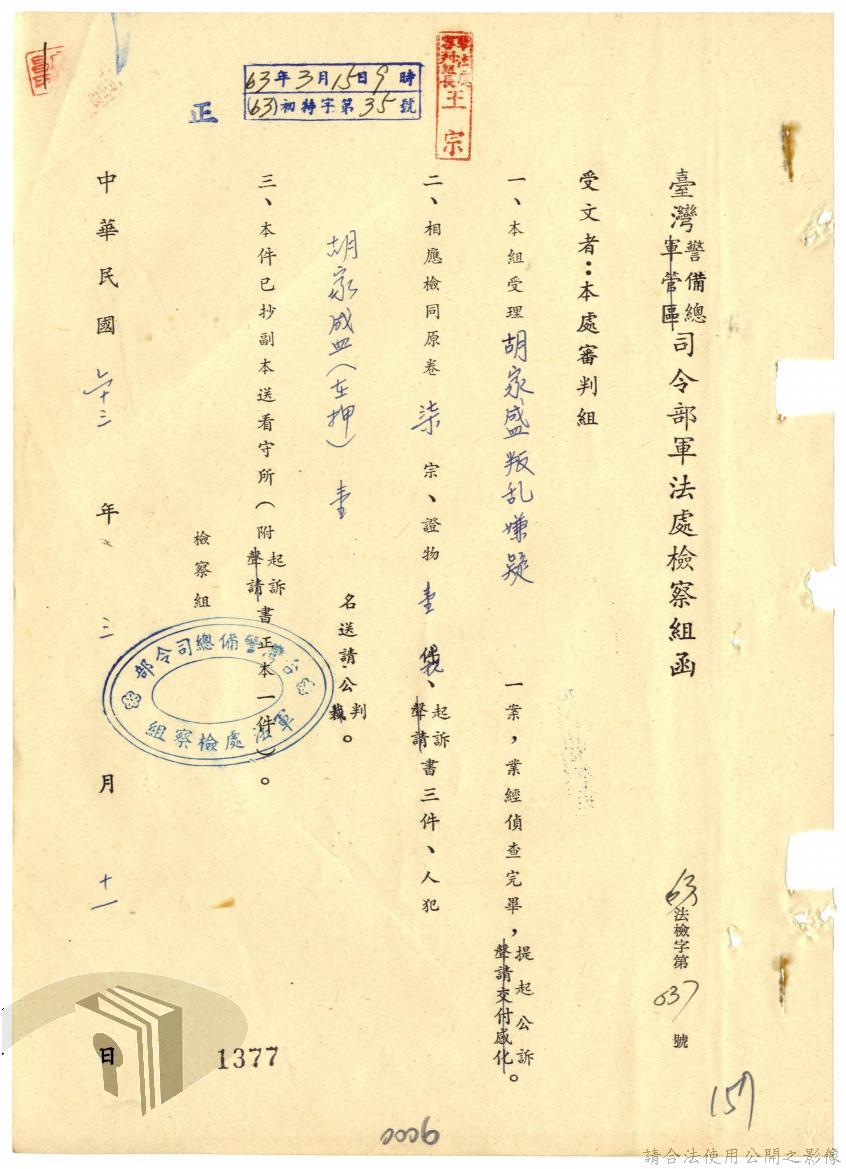 臺灣警備總軍管區司令部軍法處檢察組函
63法檢字第037號
受文者：本處審判組
一、本組受理胡家盛叛乱嫌疑一案，業經偵查完畢，提起公訴聲請交付感化。
二、相應檢同原卷柒宗、證物壹袋、起訴聲請書三件、人犯
胡家盛（在押）壹名送請公判裁。
三、本件已抄副本送看守所（附起訴聲請書正本一件）。
檢察組
台灣警備總司令部
軍法處檢察組
中華民國六十三年三月十一日
正
63年3月15日9時
(63)初特字第35號
軍法處審判組長王宗
1377
0006
157
請合法使用公開之影像